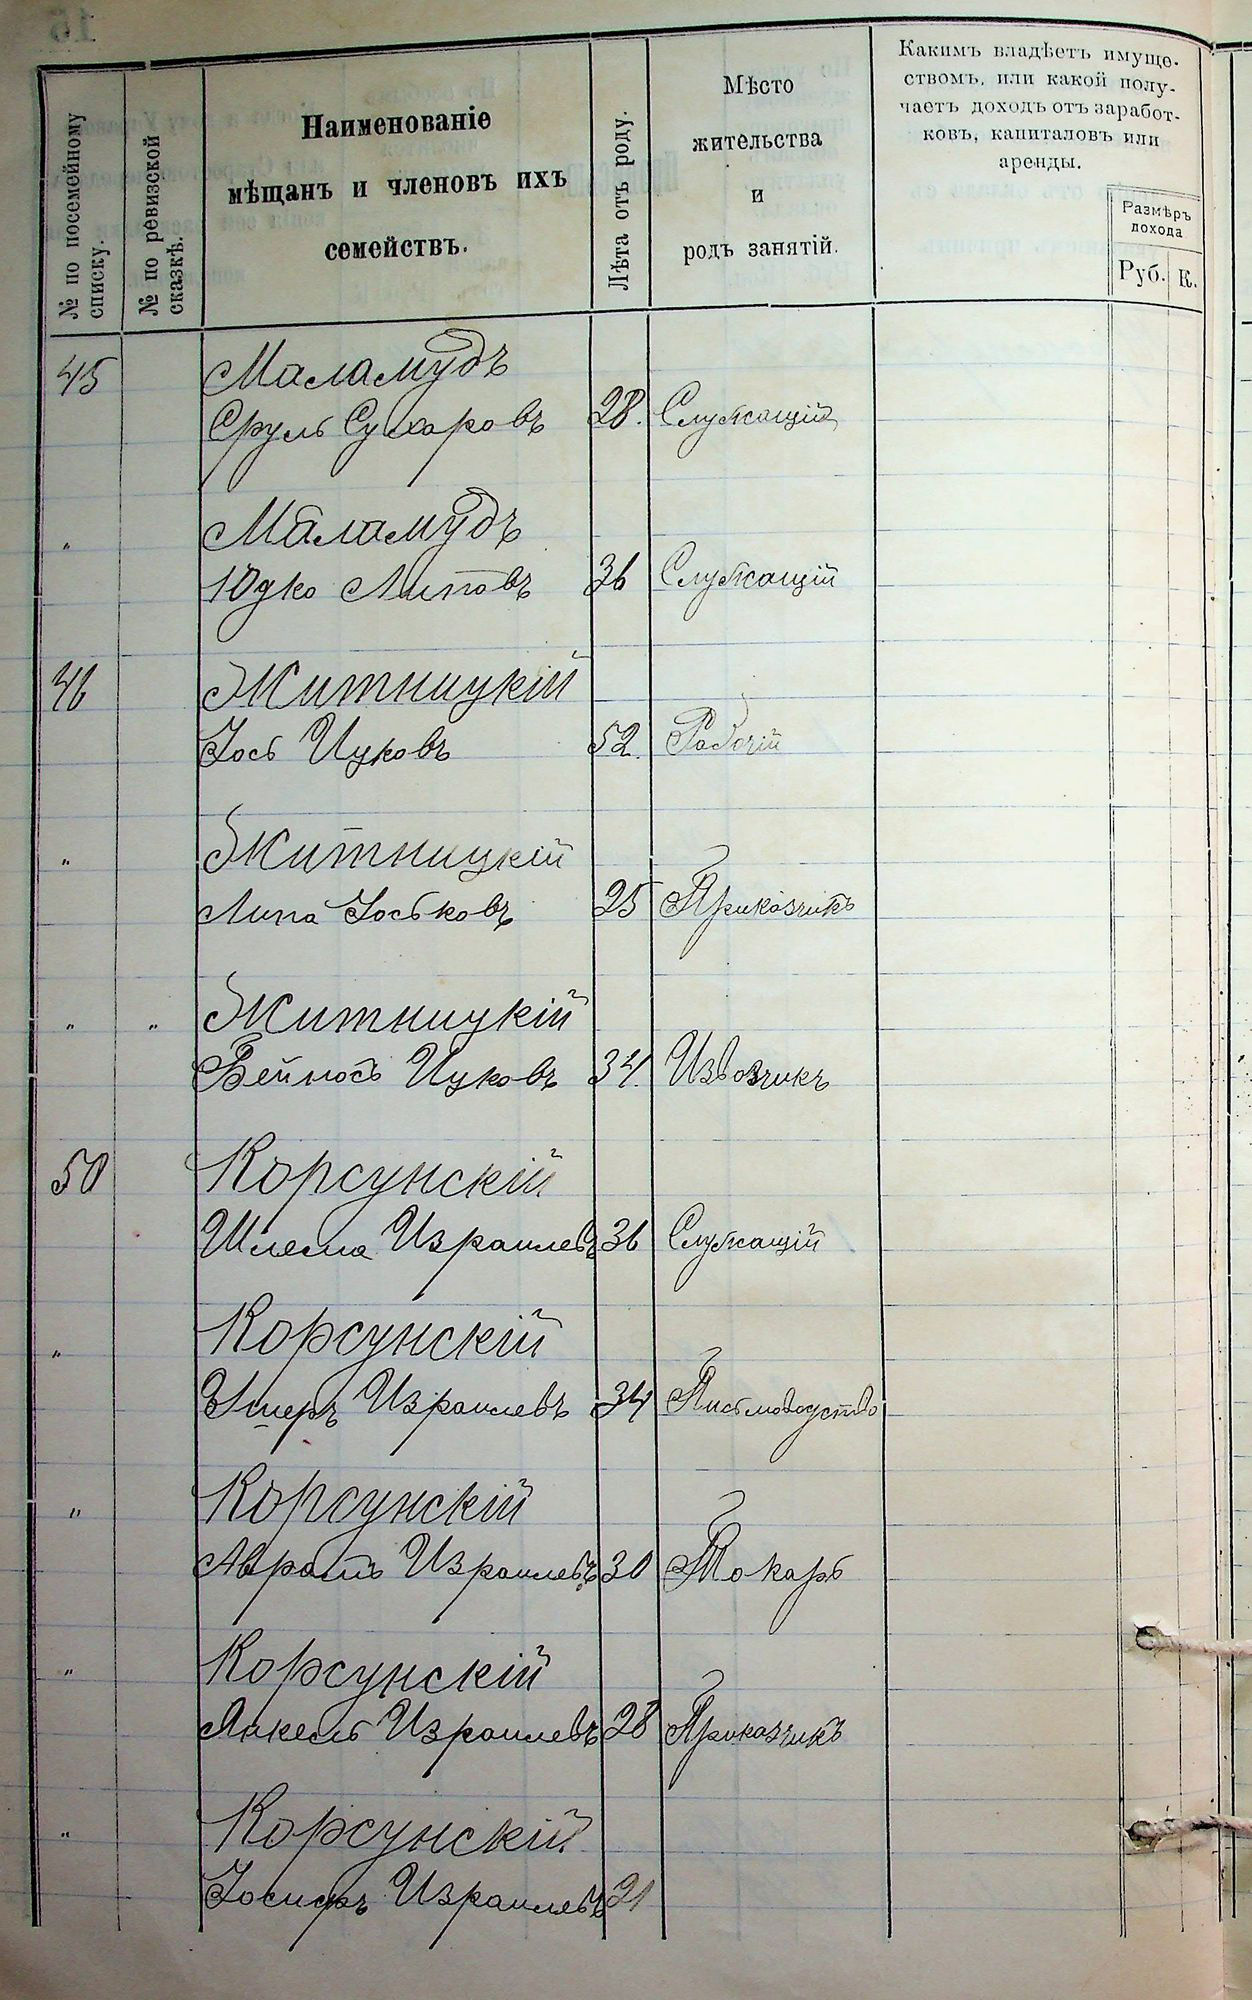 № по посемейному
списку.
№ по ревизской
сказкѣ.
Наименованіе
мѣщанъ и членовъ ихъ
семействъ.
Лѣта отъ роду.
Мѣсто
жительства
и
родъ занятій.
Какимъ владѣетъ имуще-
ствомъ, или какой полу-
чаетъ доходъ отъ заработ-
ковъ, капиталовъ или
аренды.
Размѣръ
дохода
Руб. К.
45 Маламудъ
Сруль Сухаровъ 28. Служащій
" Маламудъ
Юдко Липовъ 36 Служащій
46 Житницкій
Іось Ицковъ 52. Рабочій
" Житницкій
Липа Іоськовъ 25 Приказчикъ
" " Житницкій
Бейносъ Ицковъ 34. Извозчикъ
50 Корсунскій
Шлема Израилевъ 36 Служащій
" Корсунскій
Эшеръ Израилевъ 34 Письмоводство
" Корсунскій
Аврамъ Израилевъ 30 Токарь
" Корсунскій
Янкель Израилевъ 28 Приказчикъ
" Корсунскій
Іосифъ Израилевъ 21